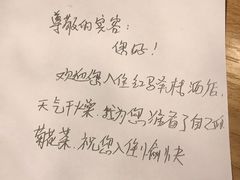 尊敬的宾客:
您好!
欢迎您入住红军桥酒店,
天气干燥,我为您准备了自己的
菊花茶,祝您入住愉快